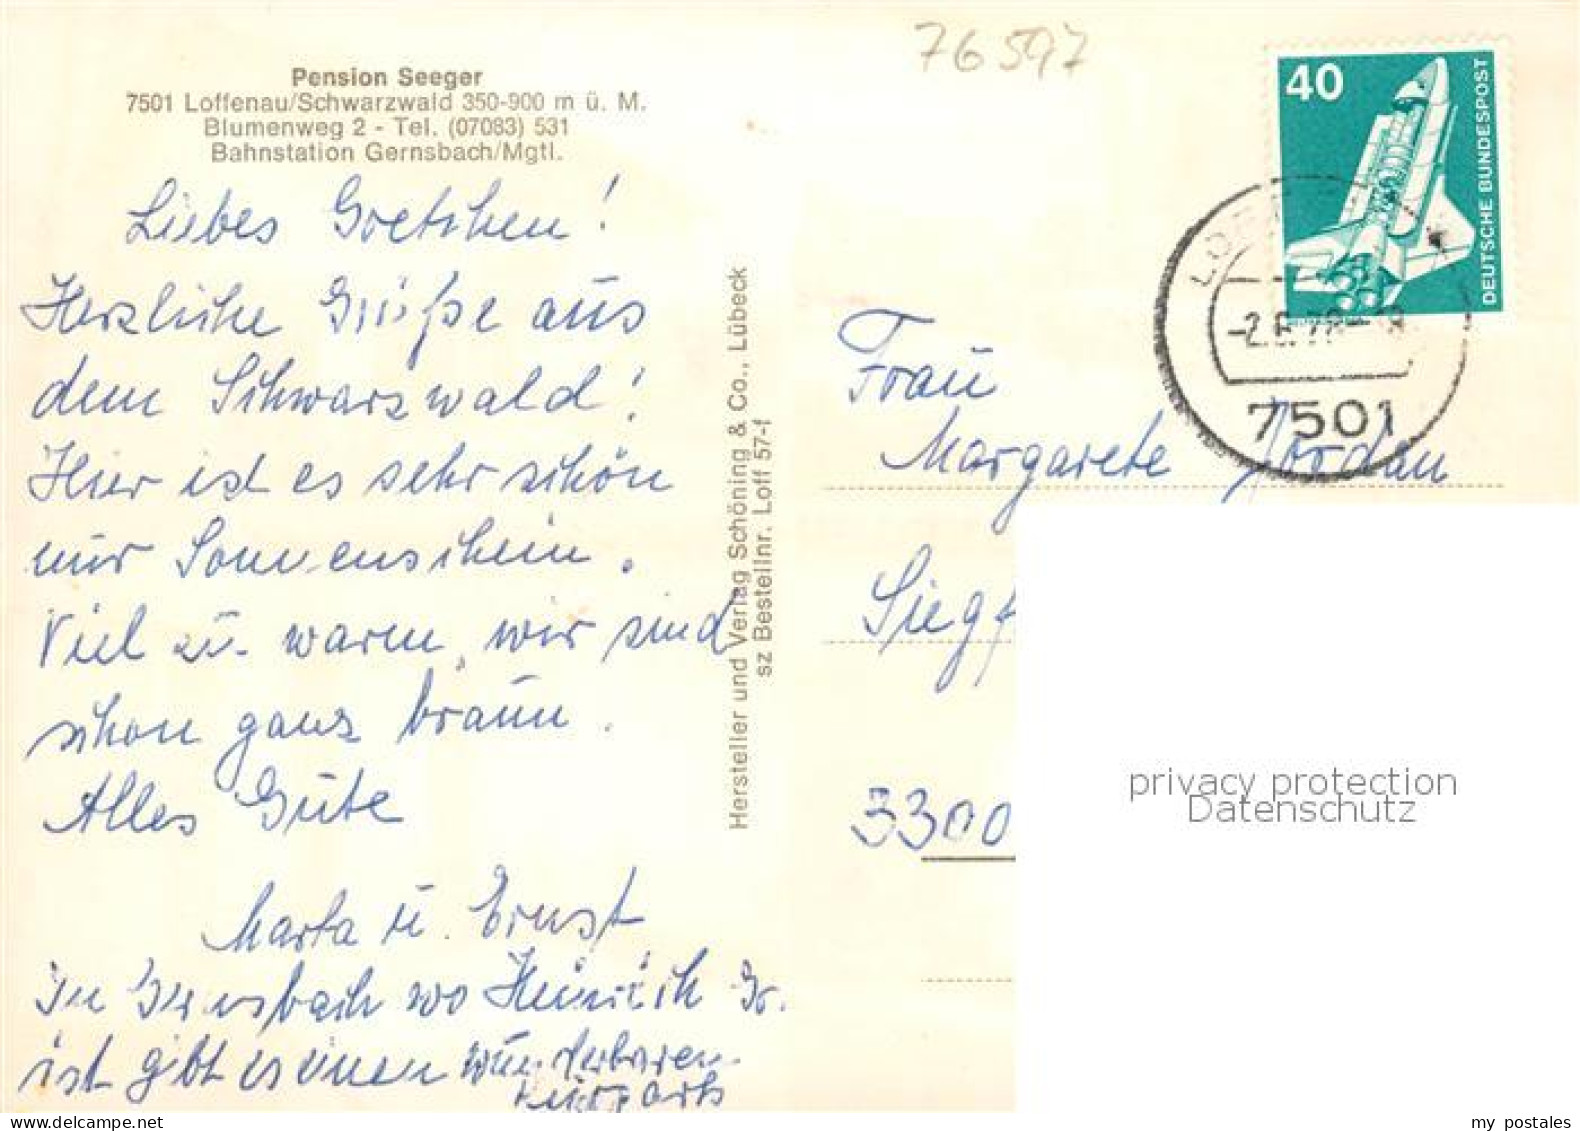 76597
Pension Seeger
7501 Loffenau/Schwarzwald 350-900 m ü. M.
Blumenweg 2 - Tel. (07083) 531
Bahnstation Gernsbach/Mgtl.
Liebes Gretchen!
Herzliche Grüße aus
dem Schwarzwald!
Hier ist es sehr schön
nur Sonnenschein.
Viel zu warm, wir sind
schon ganz braun.
Alles Gute
Marta u. Ernst
In Gernsbach wo Heinrich Gr.
ist gibt es einen wunderbaren
Kurpark
Hersteller und Verlag Schöning & Co., Lübeck
sz Bestellnr. Loff 57-f
40
DEUTSCHE BUNDESPOST
7501
Frau
Margarete Jordan
Siegf
3300
privacy protection
Datenschutz
my postales